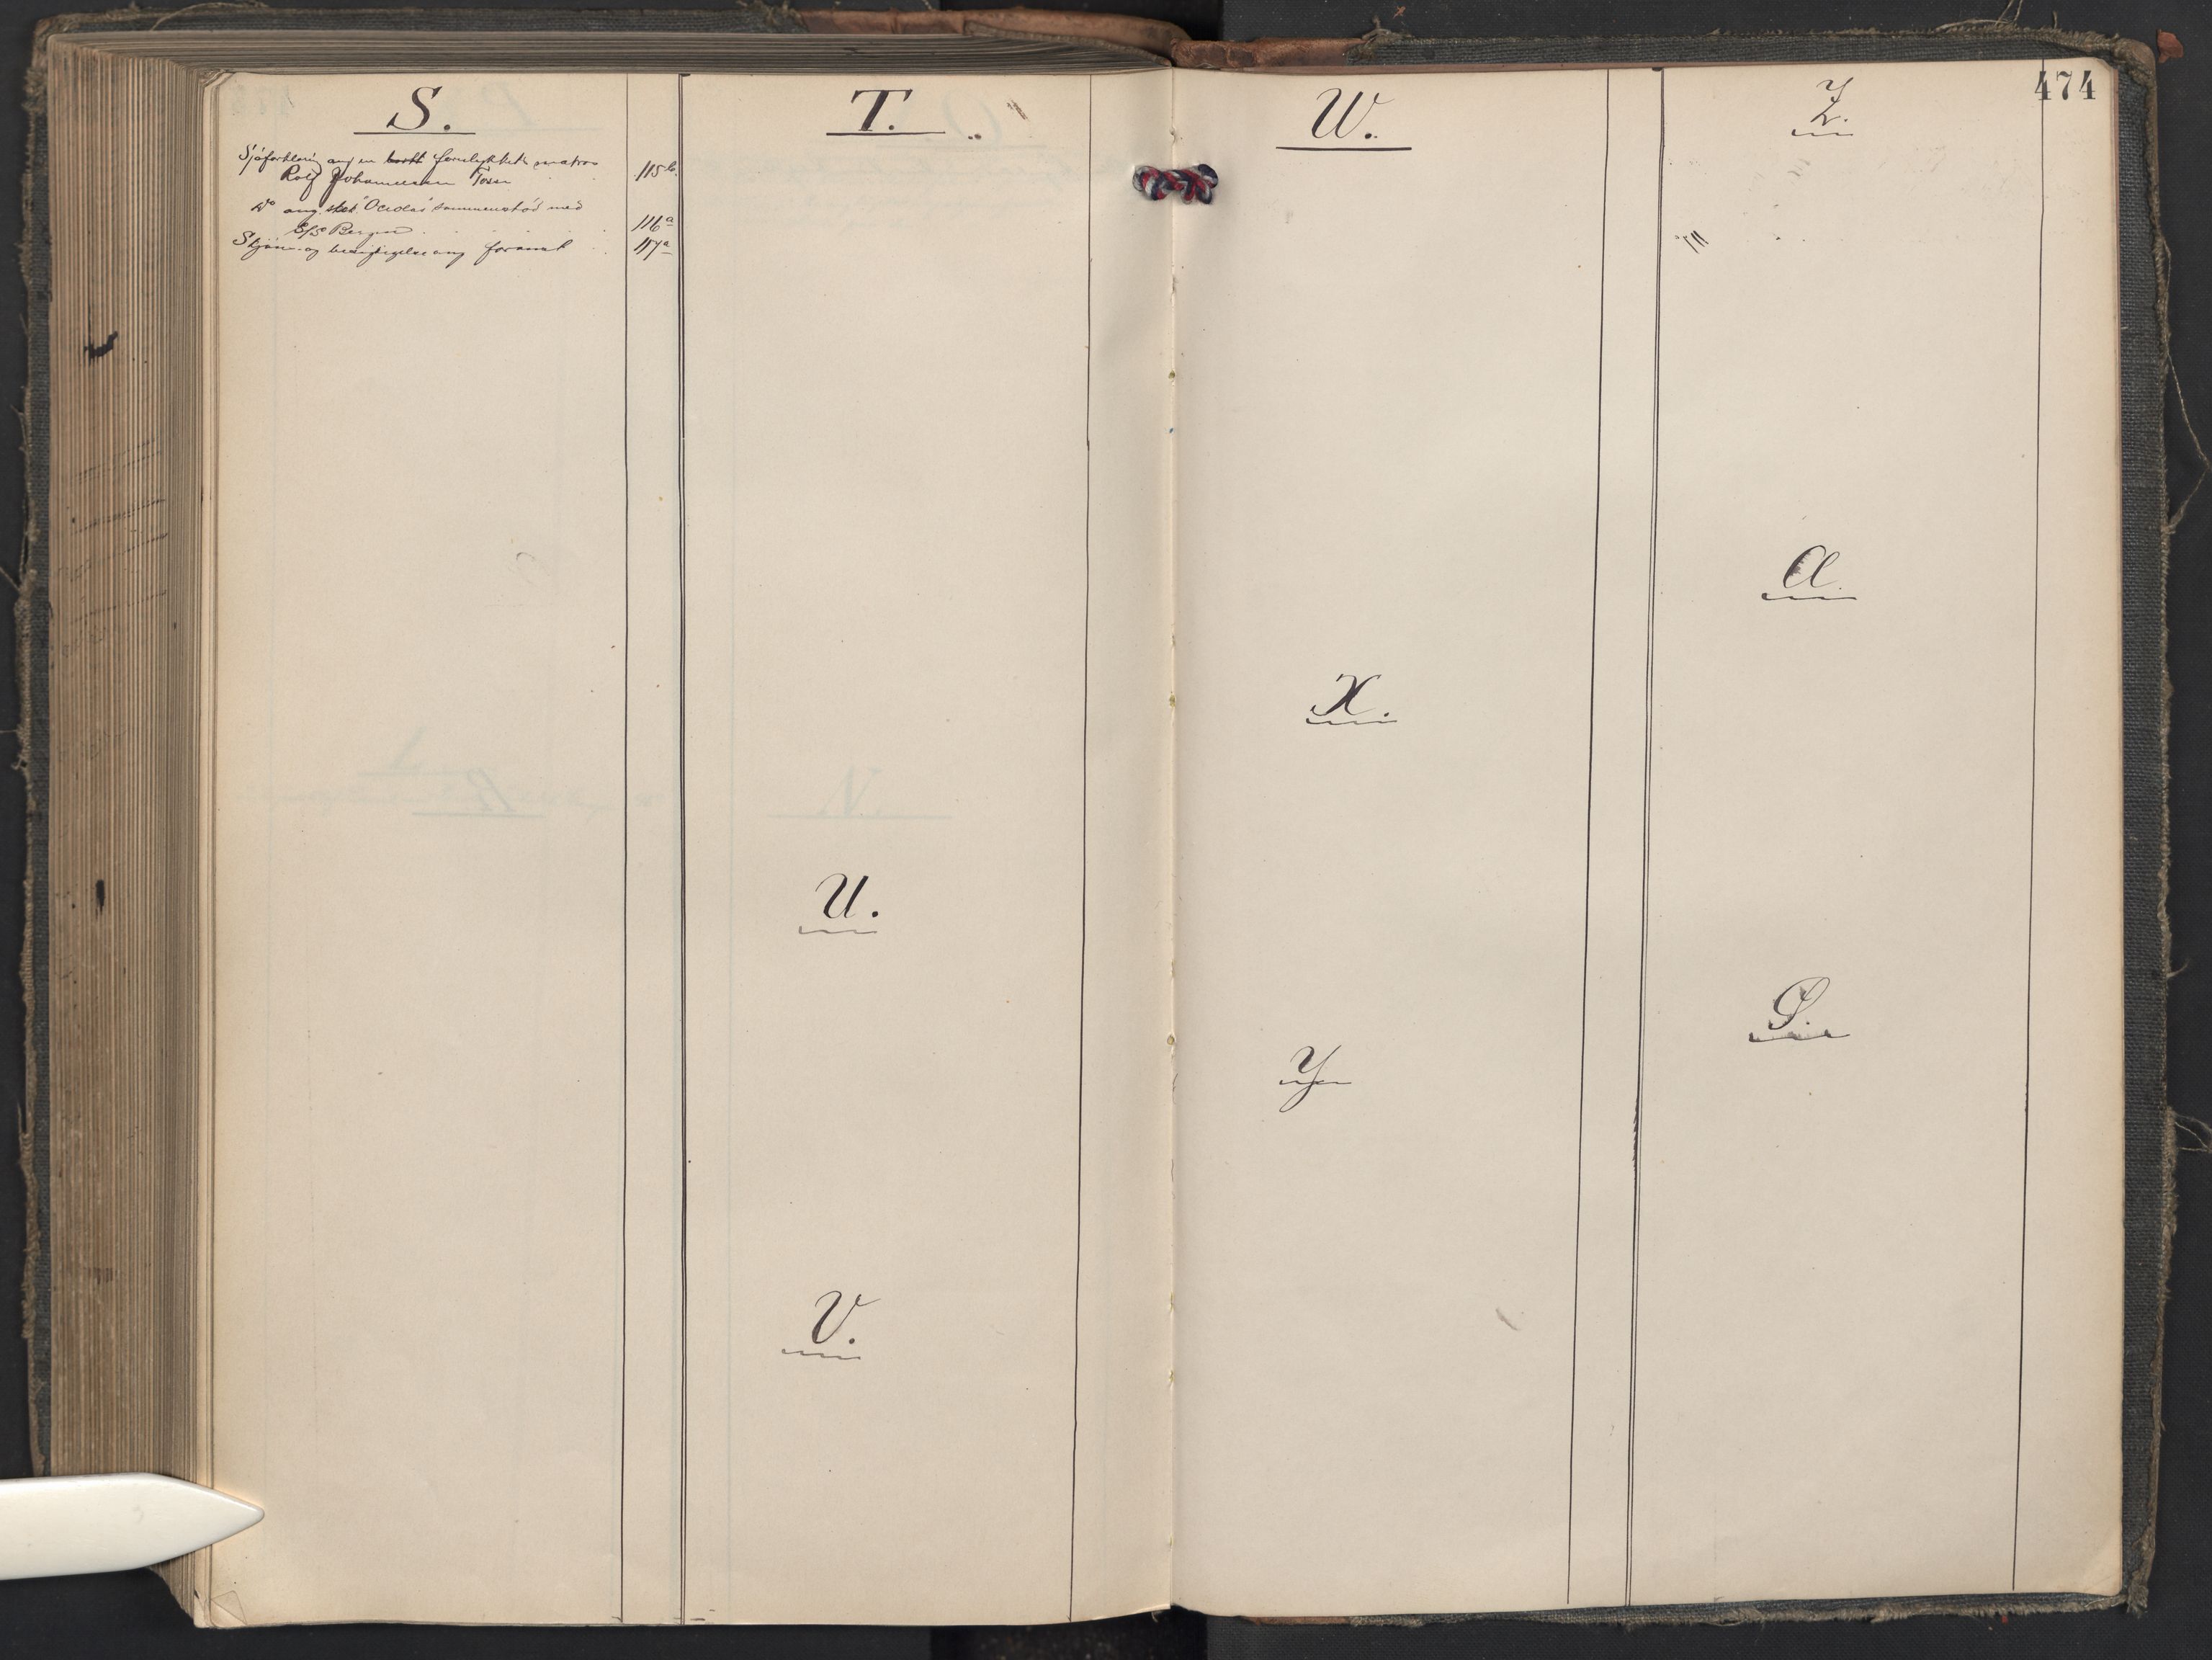 S.
Sjöforklaring ang en bortt forulykket matros
Rolf Johannessen Tosen 115b.
Do ang. sket "Oceolas" sammenstöd med
E/S Bergen 116a
Skjöns- og besigtigelse ang foranst 117a
T.
U.
V.
W.
X.
Y
474
Z.
Æ.
Ø.